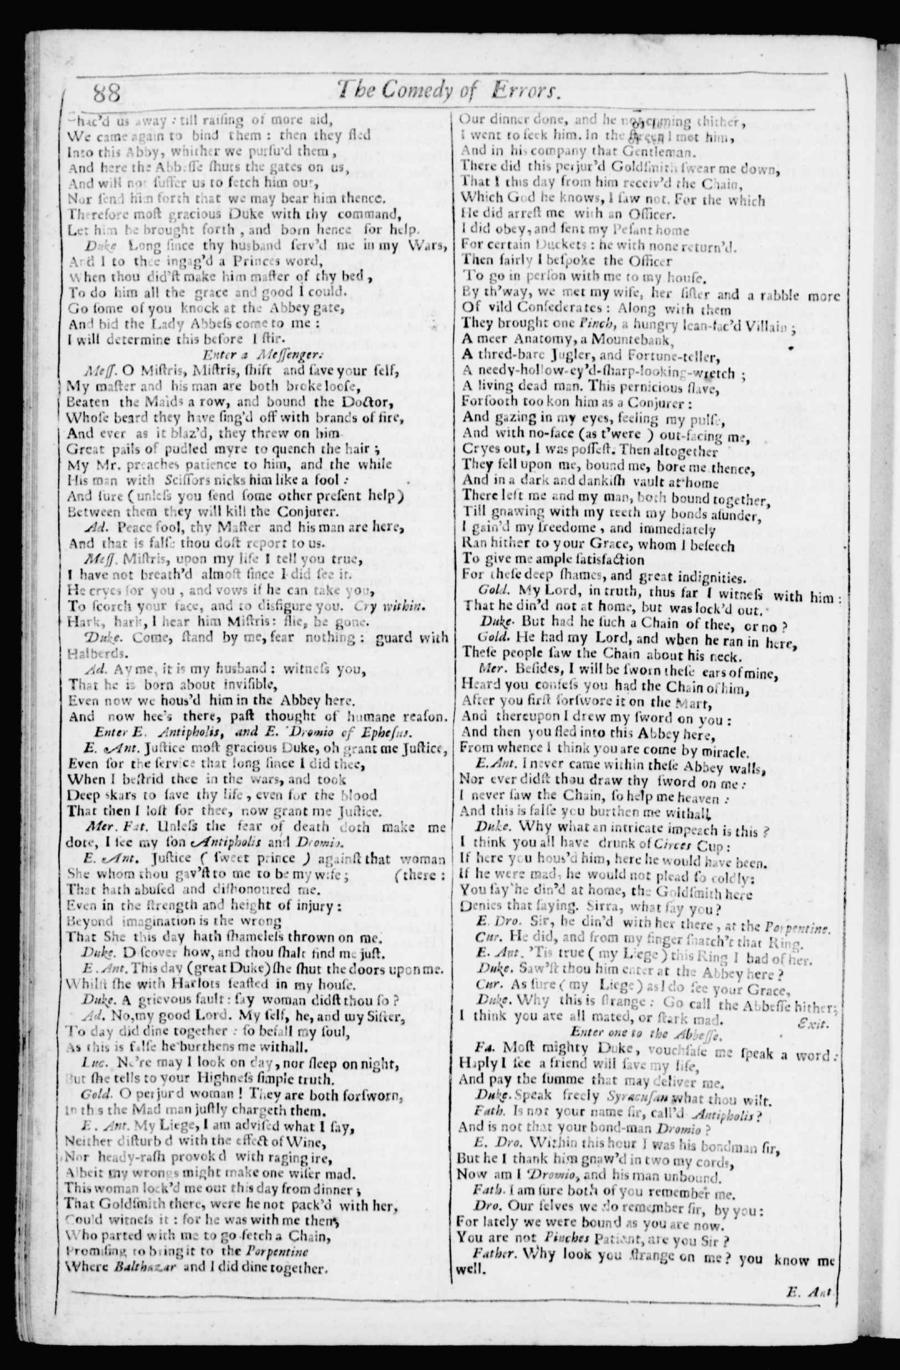 88
The Comedy of Errors.
Chac'd us away : till raiſing of more aid,
We came again to bind them : then they fled
Into this Abby, whither we purſu'd them,
And here the Abbeſſe ſhuts the gates on us,
And will not ſuffer us to fetch him out,
Nor ſend him forth that we may bear him thence.
Therefore moſt gracious Duke with thy command,
Let him be brought forth , and born hence for help.
Duke Long ſince thy husband ſerv'd me in my Wars,
And I to thee ingag'd a Princes word,
When thou did'ſt make him maſter of thy bed ,
To do him all the grace and good I could.
Go ſome of you knock at the Abbey gate,
And bid the Lady Abbeſs come to me :
I will determine this before I ſtir.
Enter a Meſſenger.
Meſſ. O Miſtris, Miſtris, ſhift and ſave your ſelf,
My maſter and his man are both broke looſe,
Beaten the Maids a row, and bound the Doctor,
Whoſe beard they have ſing'd off with brands of fire,
And ever as it blaz'd, they threw on him
Great pails of pudled myre to quench the hair ;
My Mr. preaches patience to him, and the while
His man with Sciſſors nicks him like a fool :
And ſure (unleſs you ſend ſome other preſent help)
Between them they will kill the Conjurer.
Ad. Peace fool, thy Maſter and his man are here,
And that is falſe thou doſt report to us.
Meſſ. Miſtris, upon my life I tell you true,
I have not breath'd almoſt ſince I did ſee it.
He cryes for you , and vows if he can take you,
To ſcorch your face, and to disfigure you. Cry within.
Hark, hark, I hear him Miſtris: flie, be gone.
Duke. Come, ſtand by me, fear nothing : guard with
Halberds.
Ad. Ay me, it is my husband : witneſs you,
That he is born about inviſible,
Even now we hous'd him in the Abbey here.
And now hee's there, paſt thought of humane reaſon.
Enter E. Antipholis, and E. Dromio of Epheſus.
E. Ant. Juſtice moſt gracious Duke, oh grant me Juſtice,
Even for the ſervice that long ſince I did thee,
When I beſtrid thee in the wars, and took
Deep skars to ſave thy life , even for the blood
That then I loſt for thee, now grant me Juſtice.
Mer. Fat. Unleſs the fear of death doth make me
dote, I ſee my ſon Antipholis and Dromio.
E. Ant. Juſtice ( ſweet prince ) againſt that woman
She whom thou gav'ſt to me to be my wife ; (there :
That hath abuſed and diſhonoured me.
Even in the ſtrength and height of injury :
Beyond imagination is the wrong
That She this day hath ſhameleſs thrown on me.
Duke. Diſcover how, and thou ſhalt find me juſt.
E. Ant. This day (great Duke) ſhe ſhut the doors upon me.
Whilſt ſhe with Harlots feaſted in my houſe.
Duke. A grievous fault : ſay woman didſt thou ſo ?
Ad. No, my good Lord. My ſelf, he, and my Siſter,
To day did dine together : ſo befall my ſoul,
As this is falſe he burthens me withall.
Luc. Ne're may I look on day, nor ſleep on night,
But ſhe tells to your Highneſs ſimple truth.
Gold. O perjur'd woman ! They are both forſworn,
In this the Mad man juſtly chargeth them.
E. Ant. My Liege, I am adviſed what I ſay,
Neither diſturb'd with the effect of Wine,
Nor heady-raſh provok'd with raging ire,
Albeit my wrongs might make one wiſer mad.
This woman lock'd me out this day from dinner ;
That Goldſmith there, were he not pack'd with her,
Could witneſs it : for he was with me then,
Who parted with me to go fetch a Chain,
Promiſing to bring it to the Porpentine
Where Balthazar and I did dine together.
Our dinner done, and he not coming thither,
I went to ſeek him. In the ſtreet I met him,
And in his company that Gentleman.
There did this perjur'd Goldſmith ſwear me down,
That I this day from him receiv'd the Chain,
Which God he knows, I ſaw not. For the which
He did arreſt me with an Officer.
I did obey, and ſent my Peſant home
For certain Duckets : he with none return'd.
Then fairly I beſpoke the Officer
To go in perſon with me to my houſe.
By th'way, we met my wife, her ſiſter and a rabble more
Of vild Confederates : Along with them
They brought one Pinch, a hungry lean-fac'd Villain ;
A meer Anatomy, a Mountebank,
A thred-bare Jugler, and Fortune-teller,
A needy-hollow-ey'd-ſharp-looking-wretch ;
A living dead man. This pernicious ſlave,
Forſooth took on him as a Conjurer :
And gazing in my eyes, feeling my pulſe,
And with no-face (as t'were ) out-facing me,
Cryes out, I was poſſeſt. Then altogether
They fell upon me, bound me, bore me thence,
And in a dark and dankiſh vault at home
There left me and my man, both bound together,
Till gnawing with my teeth my bonds aſunder,
I gain'd my freedome , and immediately
Ran hither to your Grace, whom I beſeech
To give me ample ſatisfaction
For theſe deep ſhames, and great indignities.
Gold. My Lord, in truth, thus far I witneſs with him :
That he din'd not at home, but was lock'd out.
Duke. But had he ſuch a Chain of thee, or no ?
Gold. He had my Lord, and when he ran in here,
Theſe people ſaw the Chain about his neck.
Mer. Beſides, I will be ſworn theſe ears of mine,
Heard you confeſs you had the Chain of him,
After you firſt forſwore it on the Mart,
And thereupon I drew my ſword on you :
And then you fled into this Abbey here,
From whence I think you are come by miracle.
E. Ant. I never came within theſe Abbey walls,
Nor ever didſt thou draw thy ſword on me :
I never ſaw the Chain, ſo help me heaven :
And this is falſe you burthen me withall.
Duke. Why what an intricate impeach is this ?
I think you all have drunk of Circes Cup :
If here you hous'd him, here he would have been.
If he were mad, he would not plead ſo coldly:
You ſay he din'd at home, the Goldſmith here
Denies that ſaying. Sirra, what ſay you ?
E. Dro. Sir, he din'd with her there , at the Porpentine.
Cur. He did, and from my finger ſnatch't that Ring.
E. Ant. 'Tis true ( my Liege ) this Ring I had of her.
Duke. Saw'ſt thou him enter at the Abbey here ?
Cur. As ſure ( my Liege) as I do ſee your Grace,
Duke. Why this is ſtrange : Go call the Abbeſſe hither;
I think you are all mated, or ſtark mad. Exit.
Enter one to the Abbeſſe.
Fa. Moſt mighty Duke, vouchſafe me ſpeak a word :
Haply I ſee a friend will ſave my life,
And pay the ſumme that may deliver me.
Duke. Speak freely Syracuſan what thou wilt.
Fath. Is not your name ſir, call'd Antipholis ?
And is not that your bond-man Dromio ?
E. Dro. Within this hour I was his bondman ſir,
But he I thank him gnaw'd in two my cords,
Now am I Dromio, and his man unbound.
Fath. I am ſure both of you remember me.
Dro. Our ſelves we do remember ſir, by you :
For lately we were bound as you are now.
You are not Pinches Patient, are you Sir ?
Father. Why look you ſtrange on me ? you know me
well.
E. Ant